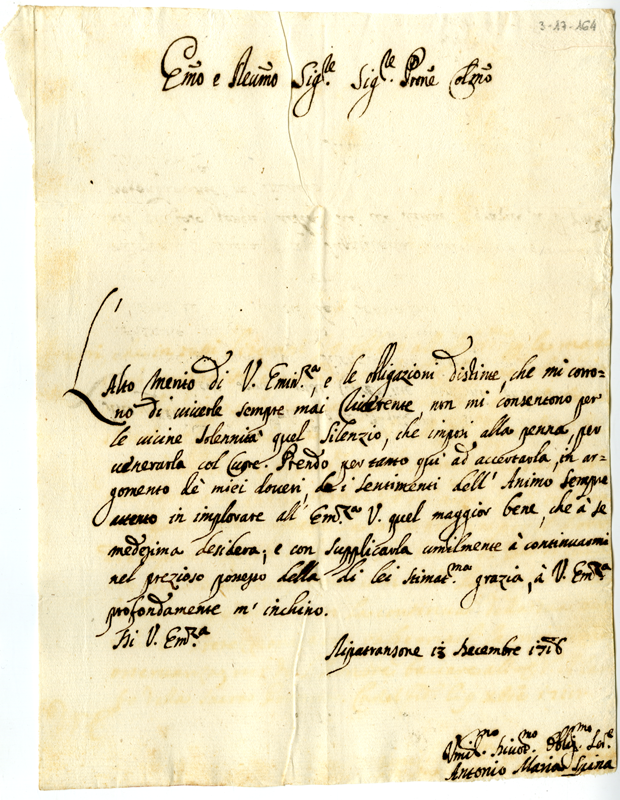 3-17-164
Em̃o e Reum̃o Sig.re Sig.re Prõne Colm̃o
L'Alto Merito di V. Emin.za, e le obligazioni distinte, che mi corro-
no di viverle sempre mai riverente, non mi consentono per
le vicine solennità quel silenzio, che imposi alla penna, per
venerarla col Cuore. Prendo per tanto qui ad accertarla, in ar-
gomento de' miei doveri, de i sentimenti dell' Animo sempre
attento in implorare all' Em.za V. quel maggior bene, che à se
medesima desidera; e con supplicarla umilmente à continuarmi
nel prezioso possesso della di lei stimat.ma grazia, à V. Em.za
profondamente m' inchino.
Di V. Em.za
Ripatransone 13 Decembre 1716
Umil.mo Divot.mo Oblig.mo Ser.e
Antonio Maria Spina